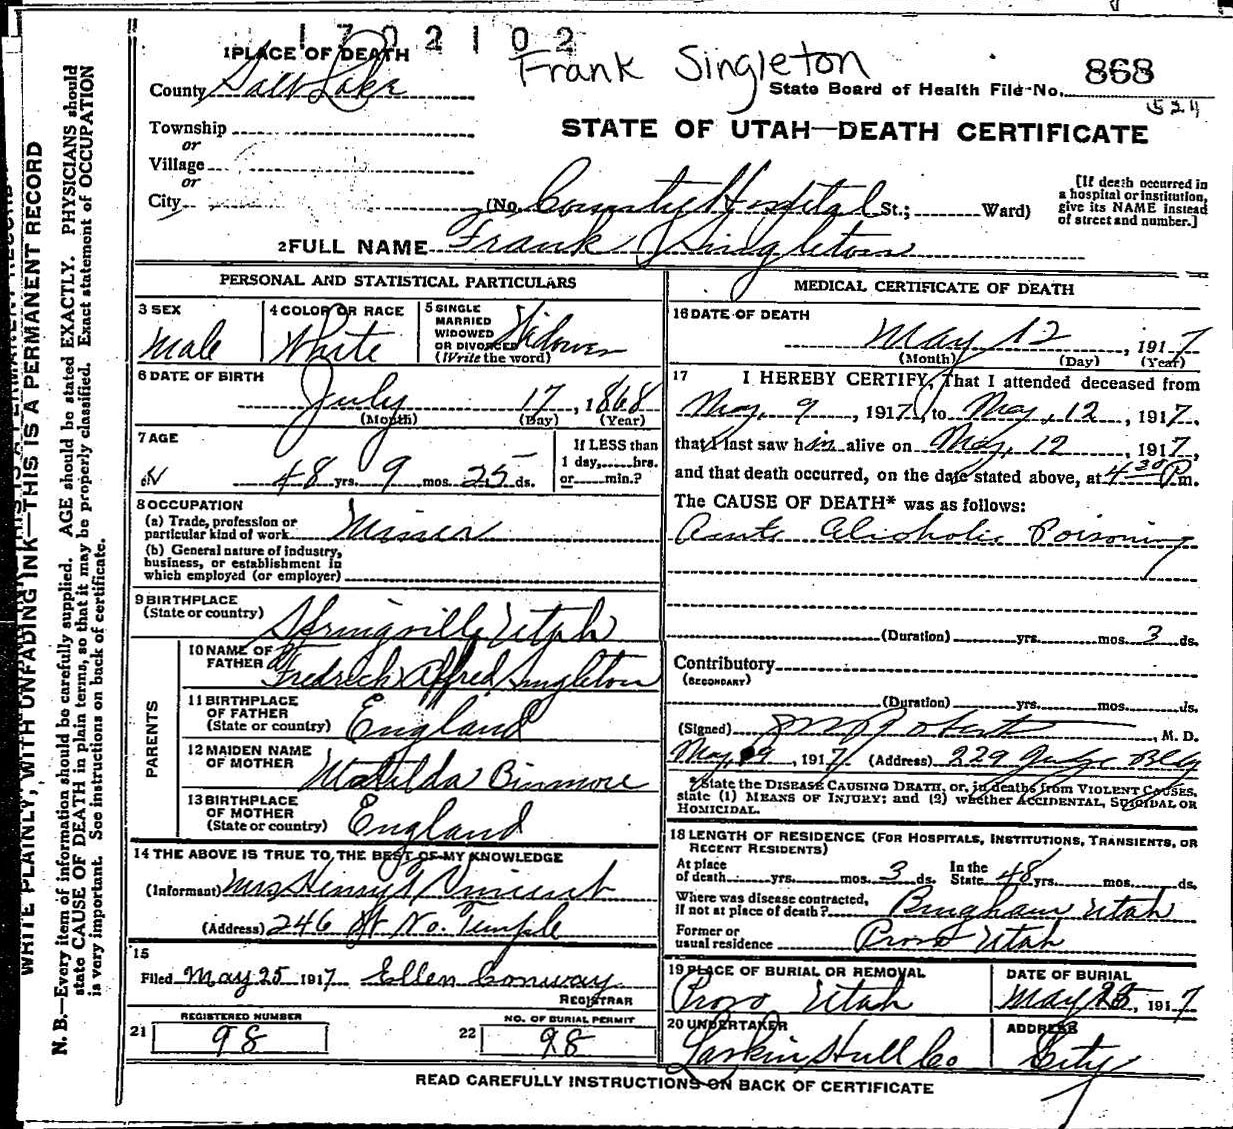 1702102
Frank Singleton
1 PLACE OF DEATH
County Salt Lake
State Board of Health File No. 868
Township
or
Village
or
City
STATE OF UTAH—DEATH CERTIFICATE
(No. County Hospital St.; Ward)
[If death occurred in
a hospital or institution,
give its NAME instead
of street and number.]
2 FULL NAME Frank Singleton
PERSONAL AND STATISTICAL PARTICULARS
3 SEX
Male
4 COLOR OR RACE
White
5 SINGLE
MARRIED
WIDOWED
OR DIVORCED
(Write the word)
Widower
6 DATE OF BIRTH
July 17, 1868
(Month) (Day) (Year)
7 AGE
48 yrs. 9 mos. 25 ds.
If LESS than
1 day, hrs.
or min.?
8 OCCUPATION
(a) Trade, profession or
particular kind of work Miner
(b) General nature of industry,
business, or establishment in
which employed (or employer)
9 BIRTHPLACE
(State or country) Springville Utah
PARENTS
10 NAME OF
FATHER Fredrich Alfred Singleton
11 BIRTHPLACE
OF FATHER
(State or country) England
12 MAIDEN NAME
OF MOTHER Matilda Binmore
13 BIRTHPLACE
OF MOTHER
(State or country) England
14 THE ABOVE IS TRUE TO THE BEST OF MY KNOWLEDGE
(Informant) Mrs Henry Vincent
(Address) 246 W. No. Temple
15
Filed May 25 1917 Ellen Conway
REGISTRAR
REGISTERED NUMBER
21 98
NO. OF BURIAL PERMIT
22 98
MEDICAL CERTIFICATE OF DEATH
16 DATE OF DEATH
May 12, 1917
(Month) (Day) (Year)
17 I HEREBY CERTIFY, That I attended deceased from
May 9, 1917, to May, 12, 1917,
that I last saw him alive on May, 12, 1917,
and that death occurred, on the date stated above, at 4 30 P m.
The CAUSE OF DEATH* was as follows:
Acute Alcoholic Poisoning
(Duration) yrs. mos. 3 ds.
Contributory
(SECONDARY)
(Duration) yrs. mos. ds.
(Signed) , M. D.
May 9, 1917 (Address) 229 Judge Bldg
*State the DISEASE CAUSING DEATH, or, in deaths from VIOLENT CAUSES,
state (1) MEANS OF INJURY; and (2) whether ACCIDENTAL, SUICIDAL OR
HOMICIDAL.
18 LENGTH OF RESIDENCE (FOR HOSPITALS, INSTITUTIONS, TRANSIENTS, OR
RECENT RESIDENTS)
At place
of death yrs. mos. 3 ds.
In the
State 48 yrs. mos. ds.
Where was disease contracted,
if not at place of death? Bingham Utah
Former or
usual residence Provo Utah
19 PLACE OF BURIAL OR REMOVAL
Provo Utah
DATE OF BURIAL
May 25, 1917
20 UNDERTAKER
Larkin Hull Co
ADDRESS
City
READ CAREFULLY INSTRUCTIONS ON BACK OF CERTIFICATE
WRITE PLAINLY, WITH UNFADING INK—THIS IS A PERMANENT RECORD
N. B.—Every item of information should be carefully supplied. AGE should be stated EXACTLY. PHYSICIANS should
state CAUSE OF DEATH in plain terms, so that it may be properly classified. Exact statement of OCCUPATION
is very important. See instructions on back of certificate.